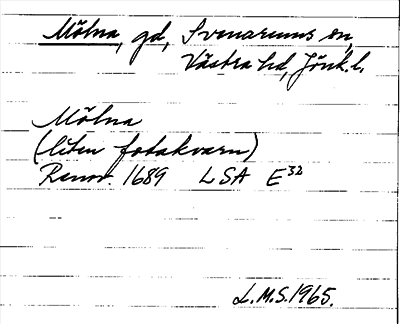 Mölna, gd, Svenarums sn,
Västra hd, Jönk. l.
Mölna
(liten fotakvarn)
Renov. 1689 LSA E32
L.M.S. 1965.